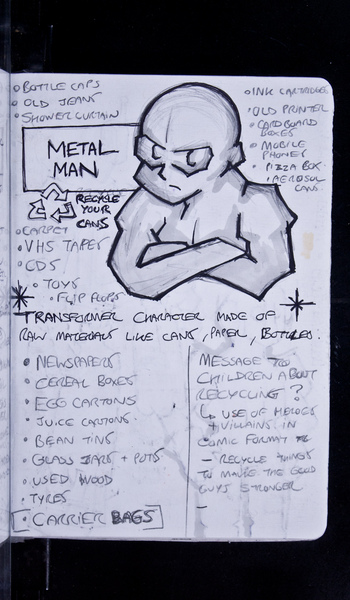 • BOTTLE CAPS
• OLD JEANS
• SHOWER CURTAIN
METAL
MAN
RECYCLE
YOUR
CANS
• CARPET
• VHS TAPES
• CDS
• TOYS
• FLIP FLOPS
• INK CARTRIDGE
• OLD PRINTER
• CARDBOARD
BOXES
• MOBILE
PHONES
• PIZZA BOX
• AEROSOL
CANS
TRANSFORMER CHARACTER MADE OF
RAW MATERIALS LIKE CANS, PAPER, BOTTLES.
• NEWSPAPERS
• CEREAL BOXES
• EGG CARTONS
• JUICE CARTONS
• BEAN TINS
• GLASS JARS + POTS
• USED WOOD
• TYRES
• CARRIER BAGS
MESSAGE TO
CHILDREN ABOUT
RECYCLING?
↳ USE OF HEROES
+ VILLAINS IN
COMIC FORMAT
– RECYCLE THINGS
TO MAKE THE GOOD
GUYS STRONGER
–